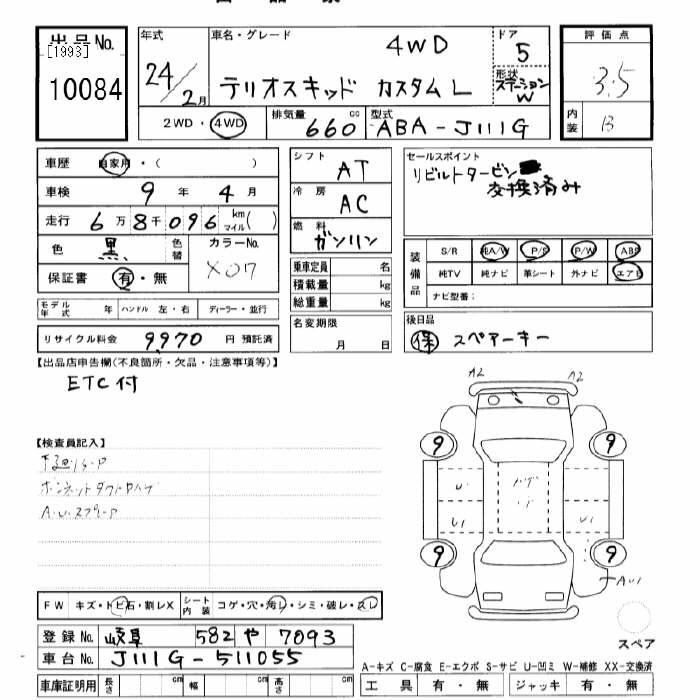 出品No.
[1993]
10084
年式
24/2月
車名・グレード
4WD
テリオスキッド カスタムL
ドア
5
形状
ステーションW
2WD・4WD
排気量
660 cc
型式
ABA-J111G
評価点
3.5
内装
B
車歴 自家用・( )
車検 9年 4月
走行 6万8千096 km マイル( )
色 黒 色替
カラーNo.
X07
保証書 有・無
モデル年式 年 ハンドル 左・右 ディーラー・並行
リサイクル料金 9970 円 預託済
シフト
AT
冷房
AC
燃料
ガソリン
乗車定員 名
積載量 kg
総重量 kg
名変期限
月 日
セールスポイント
リビルトタービン
交換済み
装備品
S/R 純A/W P/S P/W ABS
純TV 純ナビ 革シート 外ナビ エアB
ナビ型番:
後日品
保 スペアーキー
【出品店申告欄(不良箇所・欠品・注意事項等)】
ETC付
【検査員記入】
A2 A2
9 9
U1 U1
9 9
スペア
FW キズ・トビ石・割レX シート内装 コゲ・穴・汚レ・シミ・破レ・スレ
登録No. 岐阜 582 や 7093
車台No. J111G-511055
車庫証明用 長さ cm 幅 cm 高さ cm
A-キズ C-腐食 E-エクボ S-サビ U-凹ミ W-補修 XX-交換済
工具 有・無 ジャッキ 有・無